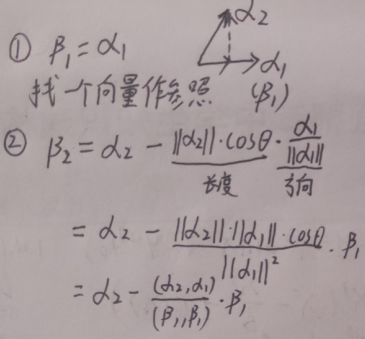 ① β₁ = α₁
α₂
α₁
(β₁)
找一个向量作参照
② β₂ = α₂ - ||α₂||·cosθ · α₁/||α₁||
长度 方向
= α₂ - ||α₂||·||α₁||·cosθ / ||α₁||² · β₁
= α₂ - (α₂,α₁)/(β₁,β₁) · β₁